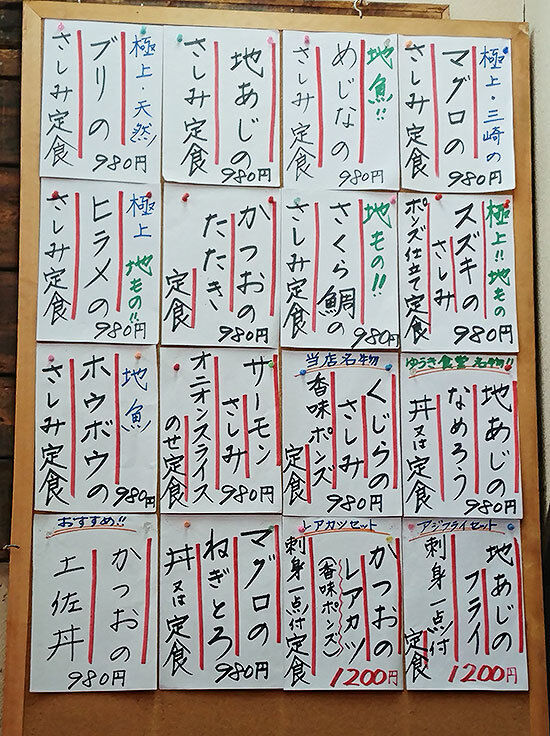 極上・三崎の
マグロの
さしみ定食
980円
地魚!!
めじなの
さしみ定食
980円
地あじの
さしみ定食
980円
極上・天然
ブリの
さしみ定食
980円
極上!!地もの
スズキの
さしみ
ポンズ仕立て定食
980円
地もの!!
さくら鯛の
さしみ定食
980円
かつおの
たたき
定食
980円
極上 地もの!!
ヒラメの
さしみ定食
980円
ゆうき食堂名物!!
地あじの
なめろう
丼又は定食
980円
当店名物
くじらの
さしみ
香味ポンズ
定食
980円
サーモン
さしみ
オニオンスライス
のせ定食
980円
地魚
ホウボウの
さしみ定食
980円
アジフライセット
地あじの
フライ
刺身一点付
定食
1200円
レアカツセット
かつおの
レアカツ
(香味ポンズ)
刺身一点付定食
1200円
マグロの
ねぎとろ
丼又は定食
980円
おすすめ!!
かつおの
土佐丼
980円